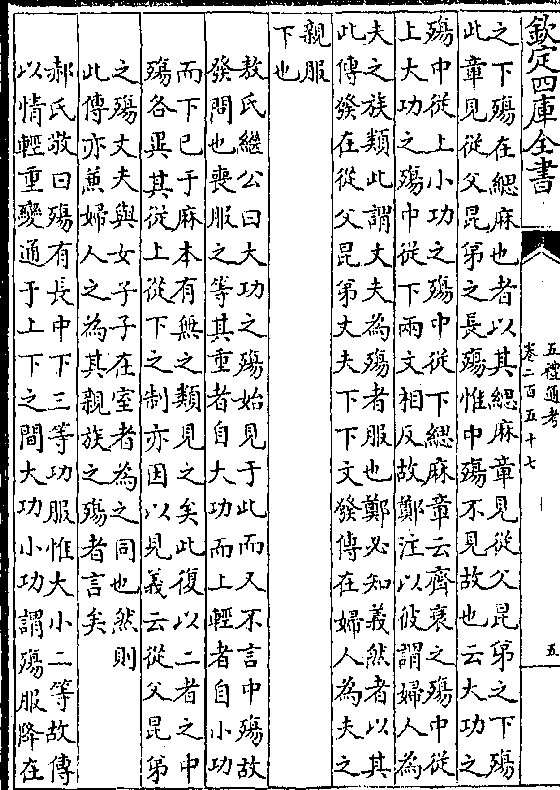 欽定四庫全書
五禮通考
卷二百五十七
五
之下殤在緦麻也者以其緦麻章見從父昆弟之下殤
此章見從父昆弟之長殤惟中殤不見故也云大功之
殤中從上小功之殤中從下緦麻章云齊衰之殤中從
上大功之殤中從下兩文相反故鄭注以彼謂婦人為
夫之族類此謂丈夫為殤者服也鄭必知義然者以其
此傳發在從父昆弟丈夫下下文發傳在婦人為夫之
親服
下也
敖氏繼公曰大功之殤始見于此而又不言中殤故
發問也喪服之等其重者自大功而上輕者自小功
而下已于麻本有無之類見之矣此復以二者之中
殤各異其從上從下之制亦因以見義云從父昆弟
之殤丈夫與女子子在室者為之同也然則
此傳亦蒹婦人之為其親族之殤者言矣
郝氏敬曰殤有長中下三等功服惟大小二等故傳
以情輕重變通于上下之間大功小功謂殤服降在